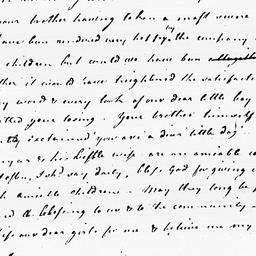 your brother having taken a most severe
have been rendered very happy by the company
children but could we have been altogether
ther it would have heightened the satisfacti
ry word & every look of our dear little boy
itted your losing. Your brother himself
ntly exclaimed you are a dear little dog
year & his little wife are an amiable co
often, I shd say daily, bless God for giving u
h amiable children. May they long be p
and the blessing to us & to the community
iss our dear girls for me & believe me my